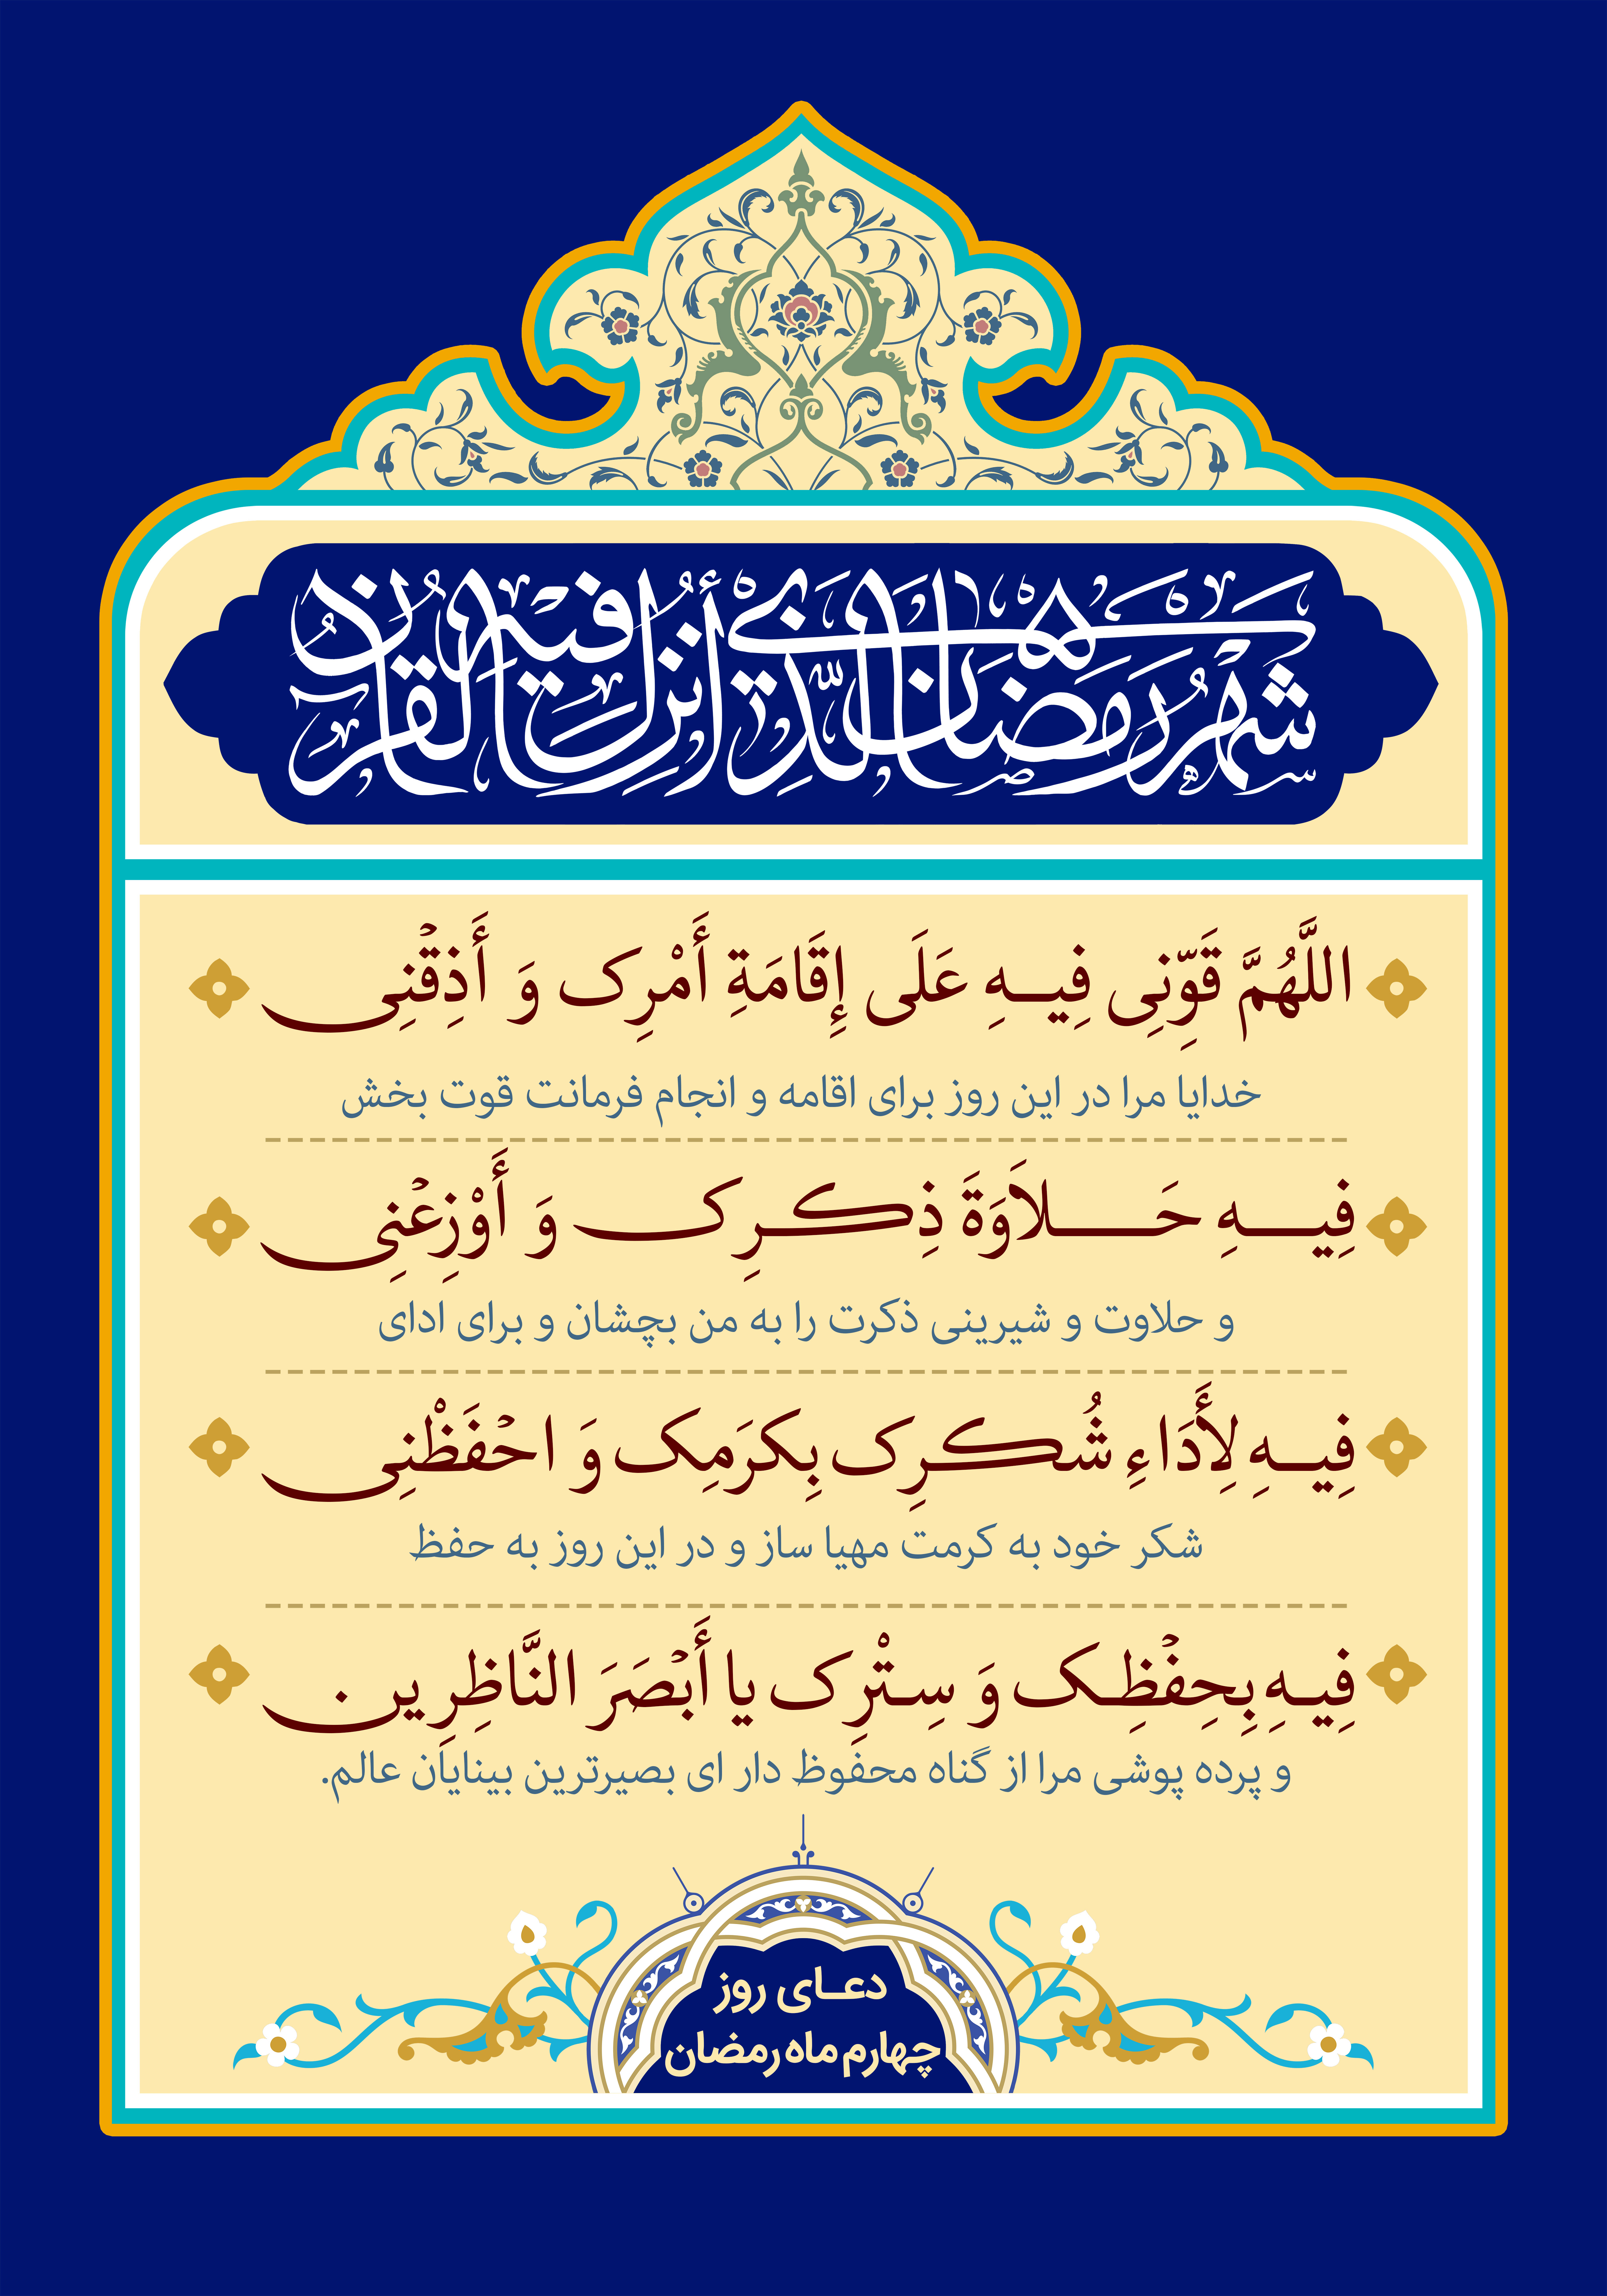 شهر رمضان الذي أنزل فيه القرآن
اللَّهُمَّ قَوِّنِی فِیـهِ عَلَی إِقَامَةِ أَمْرِک وَ أَذِقْنِی
خدایا مرا در این روز برای اقامه و انجام فرمانت قوت بخش
فِیـهِ حَـلاَوَةَ ذِکـرِک وَ أَوْزِعْنِی
و حلاوت و شیرینی ذکرت را به من بچشان و برای ادای
فِیـهِ لِأَدَاءِ شُکـرِک بِکرَمِک وَ احْفَظْنِی
شکر خود به کرمت مهیا ساز و در این روز به حفظ
فِیـهِ بِحِفْظِـک وَ سِـتْرِک یا أَبْصَرَ النَّاظِرِین .
و پرده پوشی مرا از گناه محفوظ دار ای بصیرترین بینایان عالم.
دعـای روز
چهارم ماه رمضان